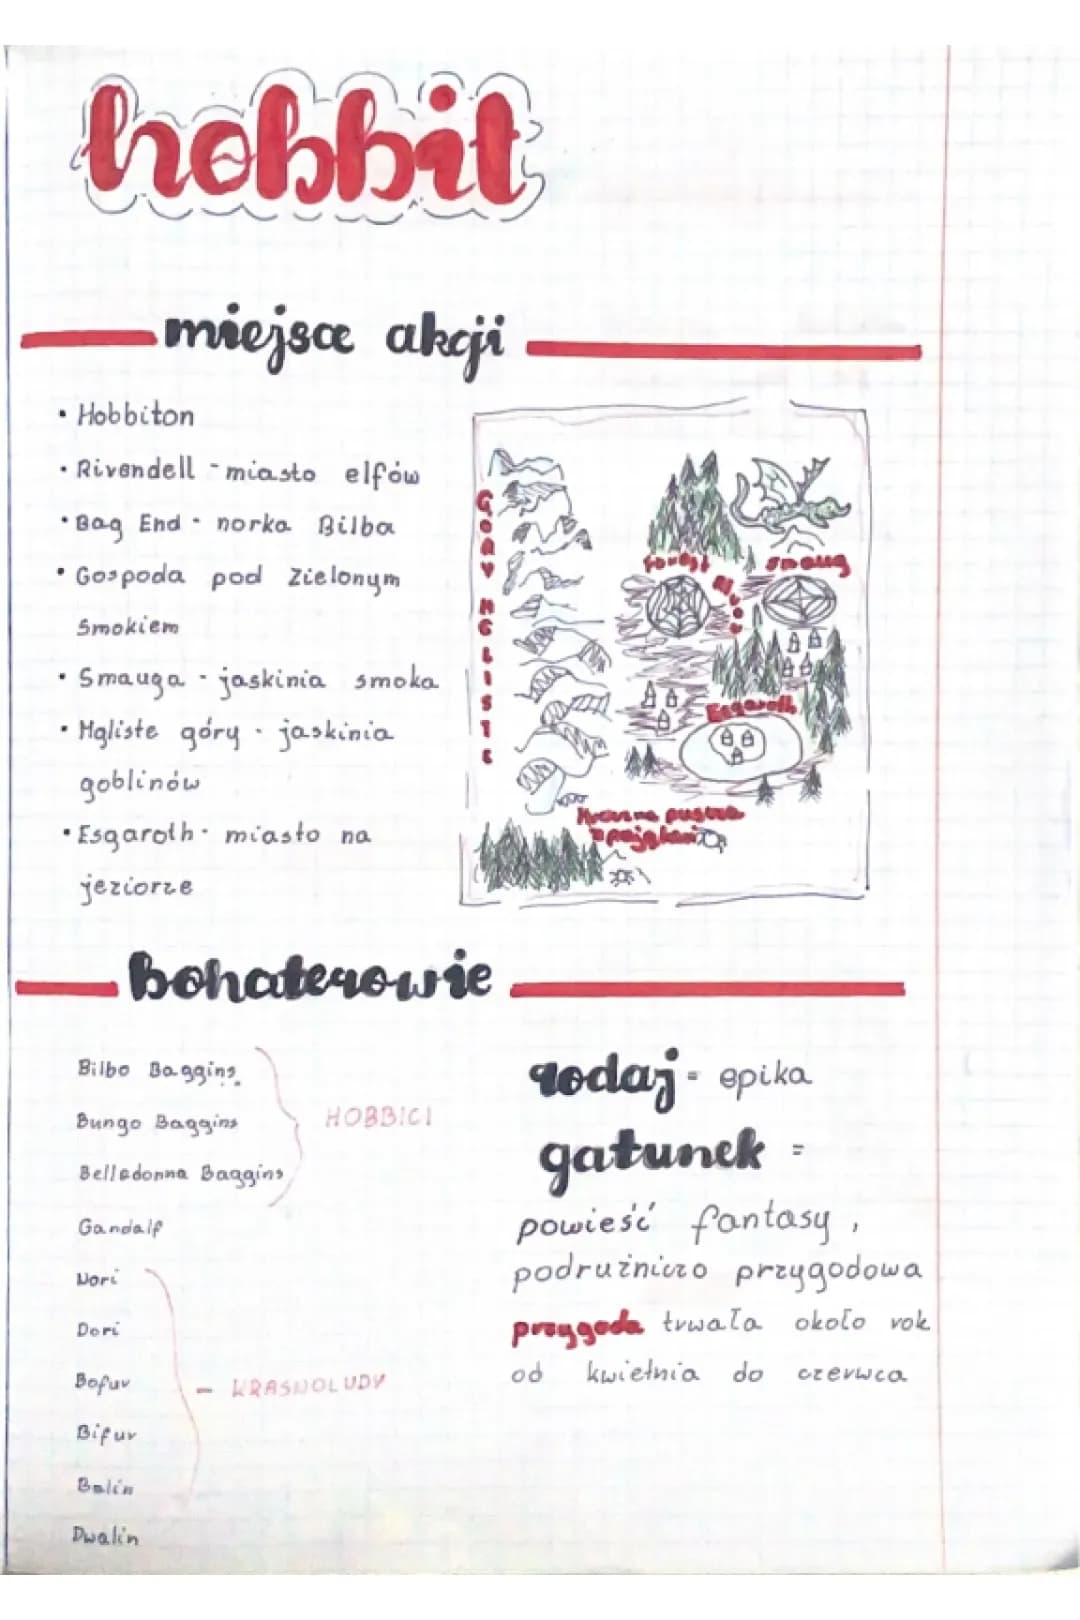 hobbit
miejsce akcji
• Hobbiton
• Rivendell - miasto elfów
• Bag End - norka Bilba
• Gospoda pod Zielonym
Smokiem
• Smauga - jaskinia smoka
• Mgliste góry - jaskinia
goblinów
• Esgaroth - miasto na
jeziorze
GÓRY MGLISTE
Forest
River
Smaug
Esgaroth
Mroczna puszcza
z pająkami
Bohaterowie
Bilbo Baggins
Bungo Baggins
Belladonna Baggins
HOBBICI
Gandalf
Nori
Dori
Bofur
Bifur
Balin
Dwalin
- KRASNOLUDY
rodzaj - epika
gatunek =
powieść fantasy,
podrużniczo przygodowa
przygoda trwała około rok
od kwietnia do czerwca